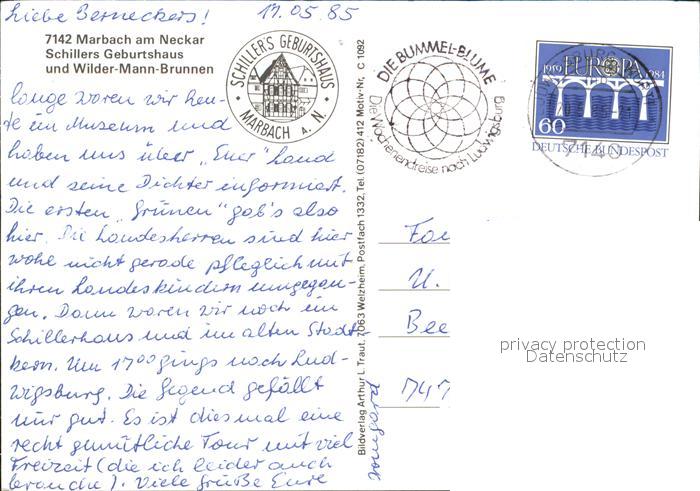 Liebe Berneckers! 17.05.85
7142 Marbach am Neckar
Schillers Geburtshaus
und Wilder-Mann-Brunnen
SCHILLERS GEBURTSHAUS
MARBACH A. N.
DIE BUMMEL-BLUME
Die Wochenendreise nach Ludwigsburg
1959 EUROPA 1984
60
DEUTSCHE BUNDESPOST
7140
lange waren wir heu-
te im Museum und
haben uns über „Euer" Land
und seine Dichter informiert.
Die ersten „Grünen" gab's also
hier. Die Landesherren sind hier
wohl nicht gerade pfleglich mit
ihren Landeskindern umgegan-
gen. Dann waren wir noch im
Schillerhaus und im alten Stadt-
kern. Um 17 00 gings nach Lud-
wigsburg. Die Gegend gefällt
mir gut. Es ist diesmal eine
recht gemütliche Tour mit viel
Freizeit (die ich leider auch
brauche). Viele Grüße Eure
Irmgard
Bildverlag Arthur L. Traut, 7063 Welzheim, Postfach 1332, Tel. (07182) 412 Motiv-Nr. C 1092
Fa
U.
Bee
747
privacy protection
Datenschutz